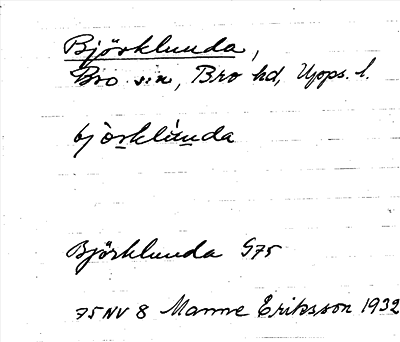 Björklunda,
Bro sn, Bro hd, Upps. l.
bjòrklùnda
Björklunda G75
75 NV 8 Manne Eriksson 1932